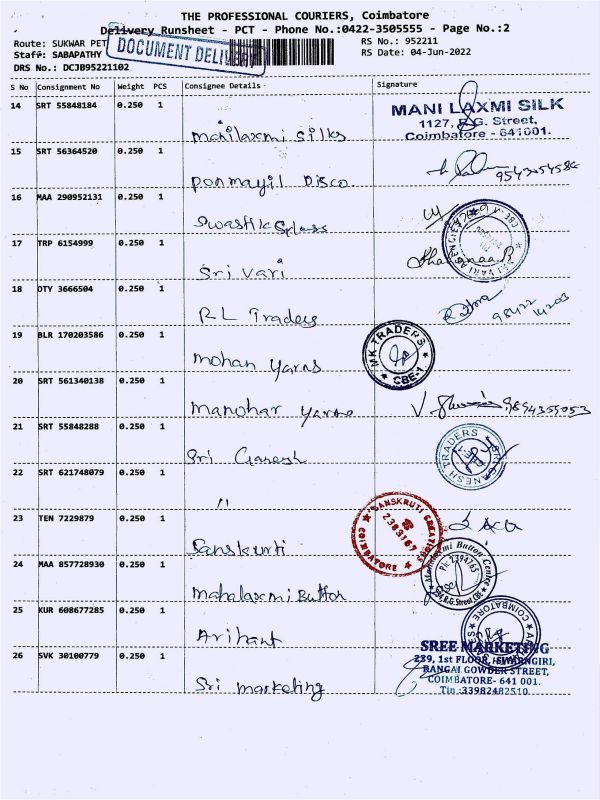 THE PROFESSIONAL COURIERS, Coimbatore
Delivery Runsheet - PCT - Phone No.:0422-3505555 - Page No.:2
Route: SUKWAR PET
RS No.: 952211
DOCUMENT DELIVERY
Staff: SABAPATHY
RS Date: 04-Jun-2022
DRS No.: DCJB95221102
S No Consignment No Weight PCS Consignee Details Signature
14 SRT 55848184 0.250 1
Manilaxmi Silks
MANI LAXMI SILK
1127, R.G. Street,
Coimbatore - 641001.
15 SRT 56364520 0.250 1
Ponmayil Disco
16 MAA 290952131 0.250 1
Swastik
17 TRP 6154999 0.250 1
Sri Vari
SRI VARI AGENCIES
18 OTY 3666504 0.250 1
RL Traders
98422
14203
19 BLR 170203586 0.250 1
Mohan Yarns
MK TRADERS
CBE-1
20 SRT 561340138 0.250 1
Manohar Yarns
9894355053
21 SRT 55848288 0.250 1
Sri Ganesh
SRI GANESH TRADERS
22 SRT 621748079 0.250 1
"
23 TEN 7229879 0.250 1
Sanskruti
SANSKRUTI CREATIONS
2383167
COIMBATORE
24 MAA 857728930 0.250 1
Mahalaxmi Button
Mahalaxmi Button Centre
Ph: 2394765
294, R.G. Street, CBE
25 KUR 608677285 0.250 1
Arihant
COIMBATORE
26 SVK 30100779 0.250 1
Sri marketing
SREE MARKETING
239, 1st FLOOR, ISWARNGIRI,
RANGAI GOWDER STREET,
COIMBATORE- 641 001.
Tin :33982482510